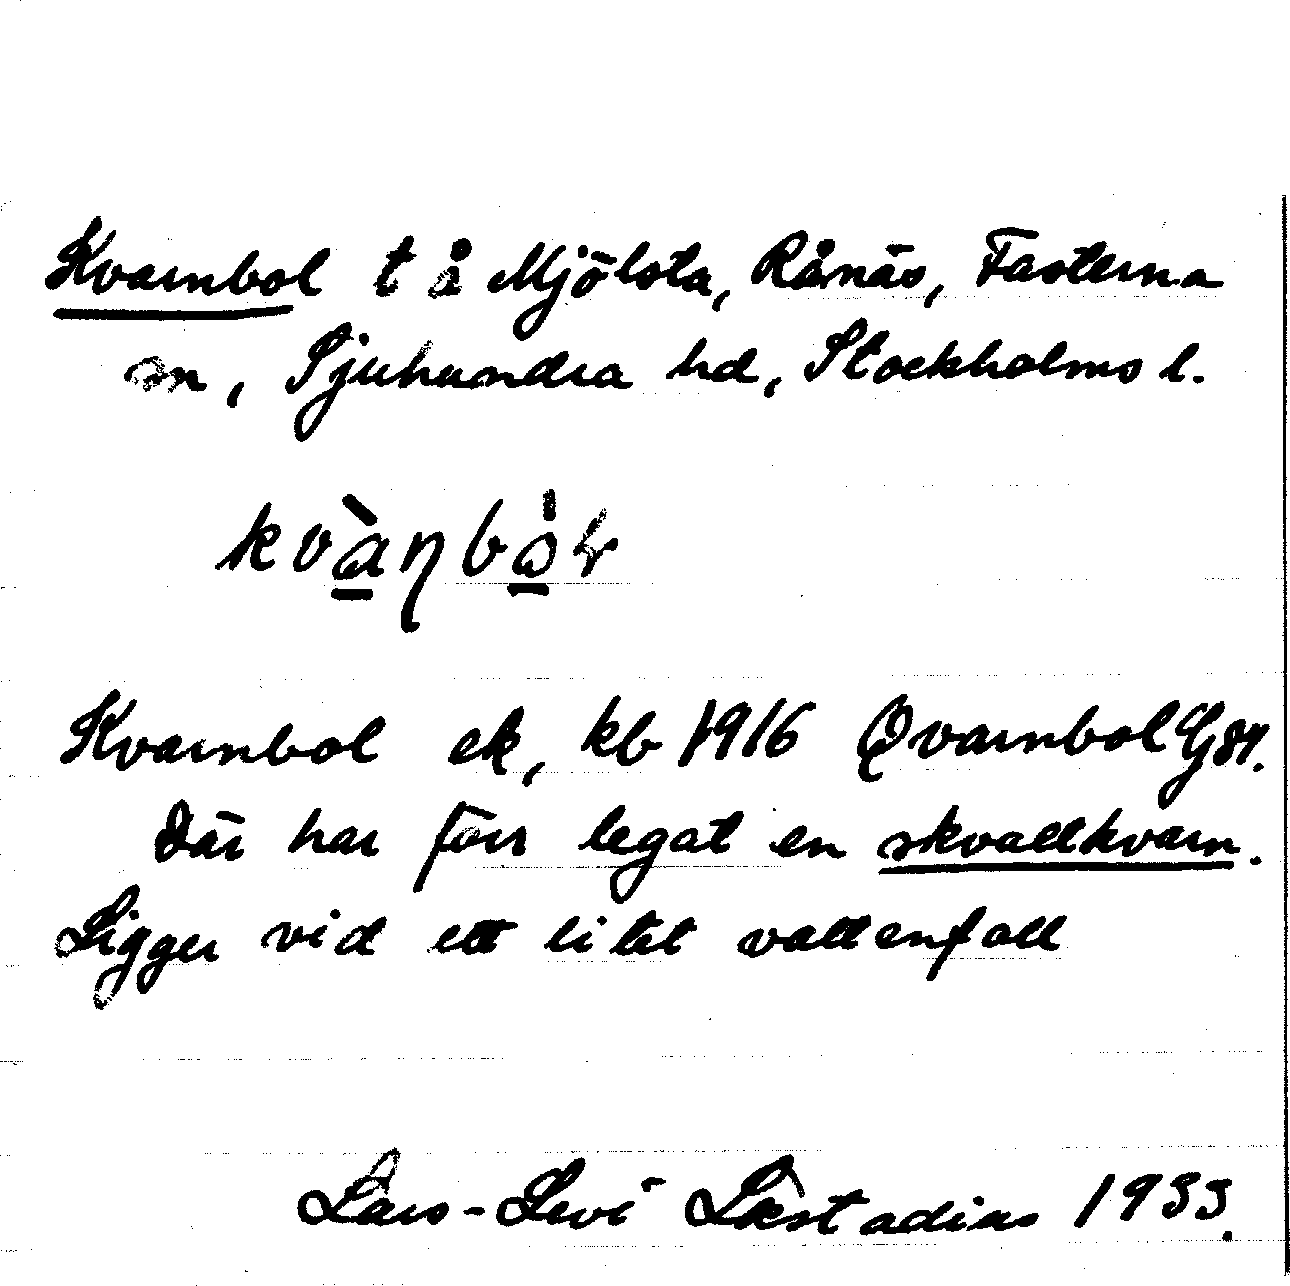 Kvarnbol t å Mjölsta, Rånäs, Fasterna
sn, Sjuhundra hd, Stockholms l.
Kvarnbol ek, kb 1916 Qvarnbol
Där har förr legat en skvaltkvarn.
Ligger vid ett litet vattenfall
Lars-Levi Læstadius 1933.